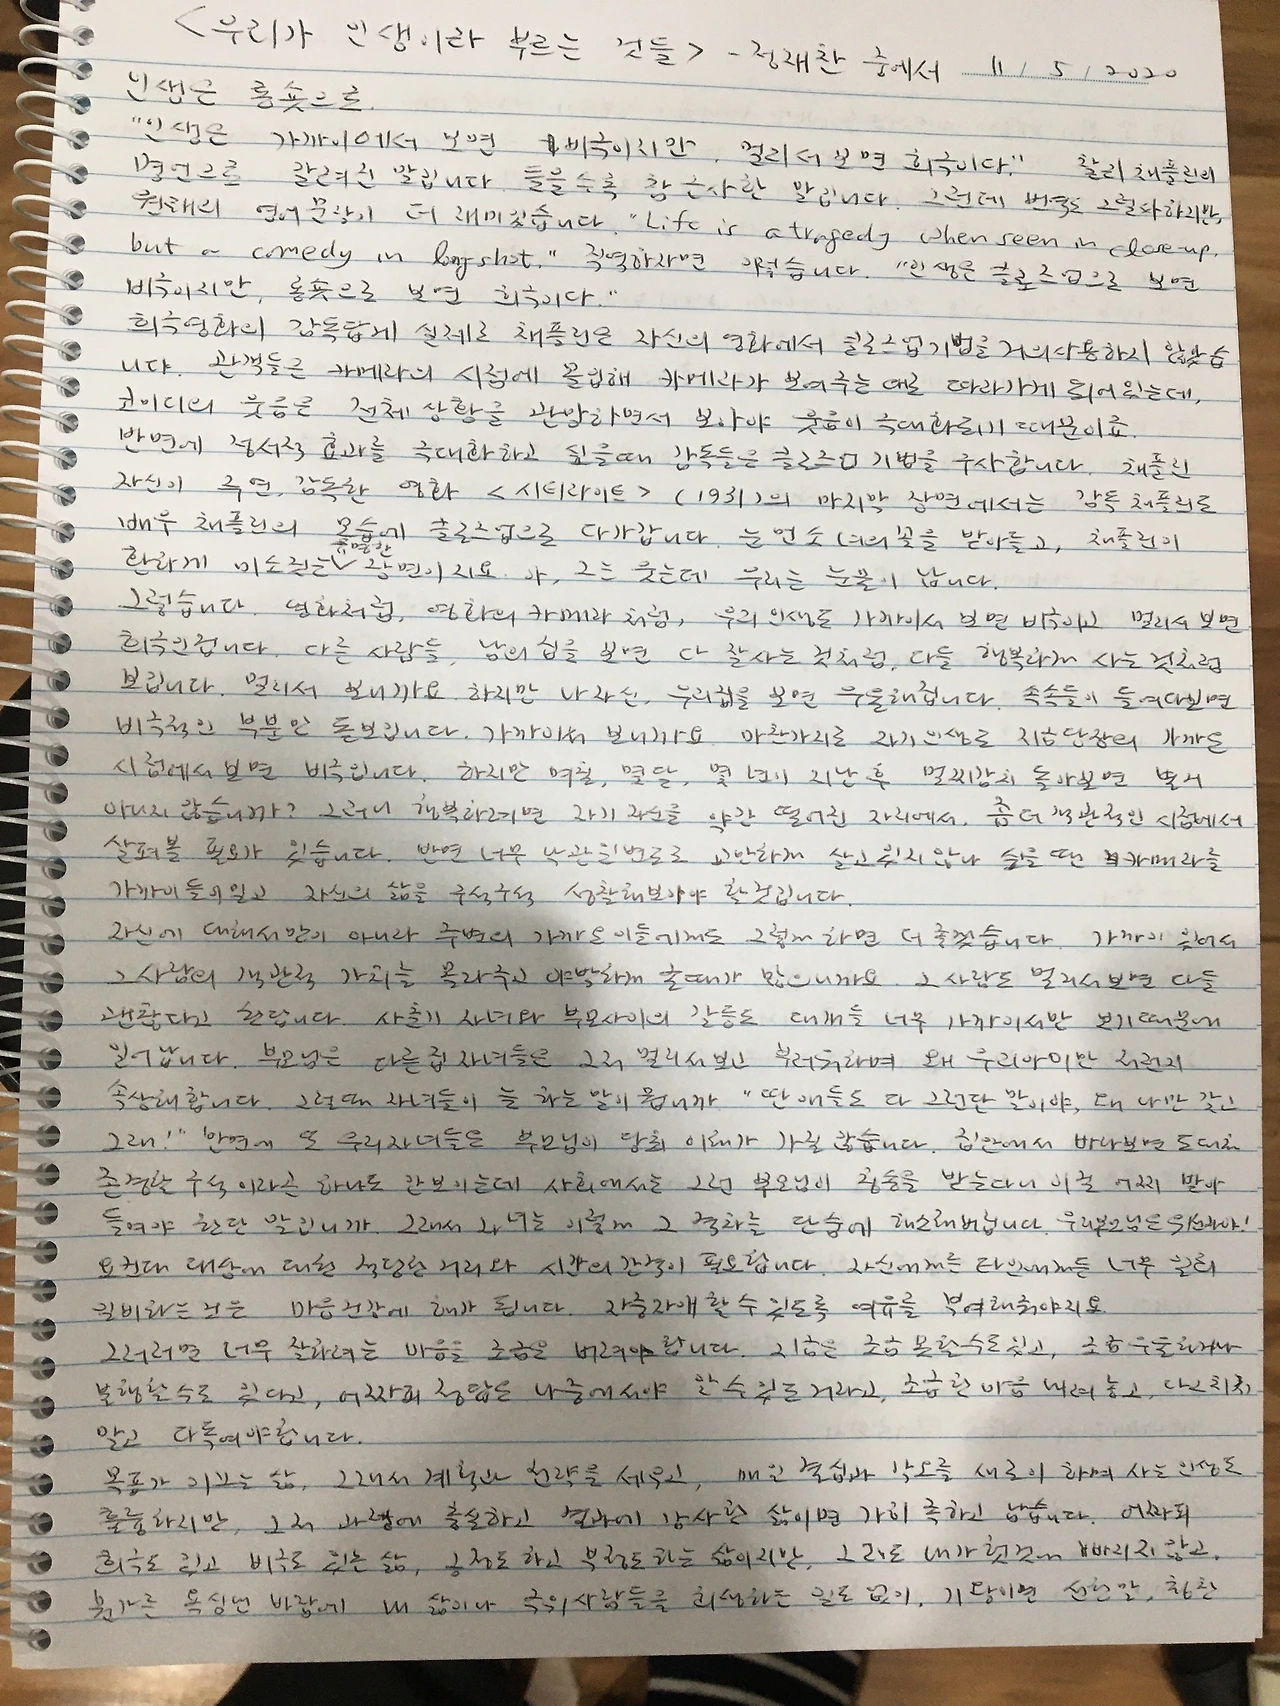 <우리가 인생이라 부르는 것들> - 정재찬 중에서 11/5/2020
인생은 롱숏으로.
"인생은 가까이에서 보면 비극이지만, 멀리서 보면 희극이다." 찰리 채플린의
명언으로 알려진 말입니다. 들을수록 참 근사한 말입니다. 그런데 번역도 그럴싸하지만,
원래의 영어문장이 더 재미있습니다. "Life is a tragedy when seen in close-up,
but a comedy in long shot." 직역하자면 이렇습니다. "인생은 클로즈업으로 보면
비극이지만, 롱숏으로 보면 희극이다."
희극영화의 감독답게 실제로 채플린은 자신의 영화에서 클로즈업기법을 거의사용하지 않았습
니다. 관객들은 카메라의 시점에 몰입해 카메라가 보여주는대로 따라가게 되어있는데,
코미디의 웃음은 전체 상황을 관망하면서 보아야 웃음이 극대화되기 때문이죠.
반면에 정서적 효과를 극대화하고 싶을때 감독들은 클로즈업 기법을 구사합니다. 채플린
자신이 주연, 감독한 영화 <시티라이트> (1931)의 마지막 장면에서는 감독 채플린도
배우 채플린의 모습에 클로즈업으로 다가갑니다. 눈먼소녀의 꽃을 받아들고, 채플린이
환하게 미소짓는 유명한 장면이지요. 아, 그는 웃는데 우리는 눈물이 납니다.
그렇습니다. 영화처럼, 영화의 카메라처럼, 우리인생도 가까이서 보면 비극이고 멀리서 보면
희극인겁니다. 다른 사람들, 남의 집을 보면 다 잘사는 것처럼, 다들 행복하게 사는것처럼
보입니다. 멀리서 보니까요. 하지만 나 자신, 우리집을 보면 우울해집니다. 속속들이 들여다보면
비극적인 부분만 돋보입니다. 가까이서 보니까요. 마찬가지로 자기인생도 지금당장의 가까운
시점에서 보면 비극입니다. 하지만 며칠, 몇달, 몇 년이 지난 후 멀찌감치 돌아보면 별거
아니지 않습니까? 그러니 행복하려면 자기 자신을 약간 떨어진 자리에서, 좀더 객관적인 시점에서
살펴볼 필요가 있습니다. 반면 너무 낙관일변도로 교만하게 살고있지않나 싶을 땐 카메라를
가까이 들이밀고 자신의 삶을 구석구석 성찰해보아야 할것입니다.
자신에 대해서만이 아니라 주변의 가까운이들에게도 그렇게하면 더 좋겠습니다. 가까이 있어서
그사람의 객관적 가치를 몰라주고 야박하게 굴때가 많으니까요. 그 사람도 멀리서보면 다들
괜찮다고 한답니다. 사춘기 자녀와 부모사이의 갈등도 대개들 너무 가까이서만 보기때문에
일어납니다. 부모님은 다른집 자녀들은 그저 멀리서보고 부러워하며 왜 우리아이만 저런지
속상해합니다. 그럴때 자녀들이 늘 하는말이 뭡니까. "딴 애들도 다 그런단 말이야, 왜 나만 갖고
그래!" 반면에 또 우리자녀들은 부모님이 당최 이해가 가질 않습니다. 집안에서 바라보면 도대체
존경할 구석이라곤 하나도 안보이는데 사회에서는 그런 부모님이 칭송을 받는다니 이걸 어찌 받아
들여야 한단 말입니까. 그래서 자녀는 이렇게 그 격차를 단숨에 해소해버립니다. 우리부모님은위선자야!
요컨대 대상에 대한 적당한 거리와 시간의 간격이 필요합니다. 자신에게든 타인에게든 너무 일희
일비하는것은 마음건강에 해가 됩니다. 자중자애할수있도록 여유를 부여해줘야지요.
그러려면 너무 잘하려는 마음을 조금은 버려야합니다. 지금은 조금 못할수도있고, 조금 우울하거나
불행할수도 있다고, 어차피 정답은 나중에서야 알수있는 거라고, 조급한 마음 내려놓고, 다그치지
말고 다독여야합니다.
목표가 이끄는 삶, 그래서 계획과 전략을 세우고, 매일 결심과 각오를 새로이 하며 사는인생도
훌륭하지만, 그저 과정에 충실하고 결과에 감사한 삶이면 가히 족하고 남습니다. 어차피
희극도 있고 비극도 있는 삶, 긍정도 하고 부정도하는 삶이지만, 그래도 내가 헛것에 빠지지 않고,
헛가른 욕심낸 바람에 내 삶이나 주위사람들을 희생하는 일도 없이, 기왕이면 선한말, 칭찬